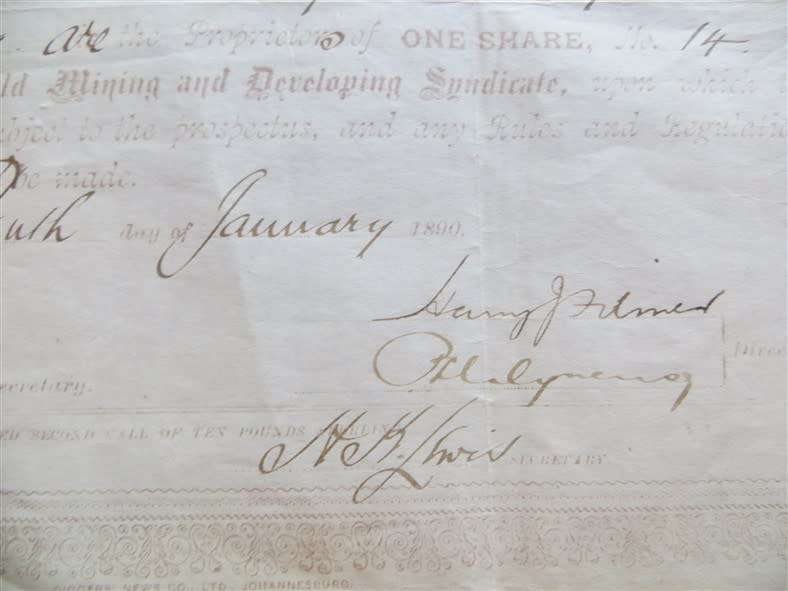 are the Proprietors of ONE SHARE, No. 14
ld Mining and Developing Syndicate, upon which
subject to the prospectus, and any Rules and Regulatio
be made.
day of January 1890.
Harry J. Filmer
Direc
ecretary.
ED SECOND CALL OF TEN POUNDS STERLIN
H. K. Lewis SECRETARY.
DIGGERS' NEWS CO., LTD., JOHANNESBURG.